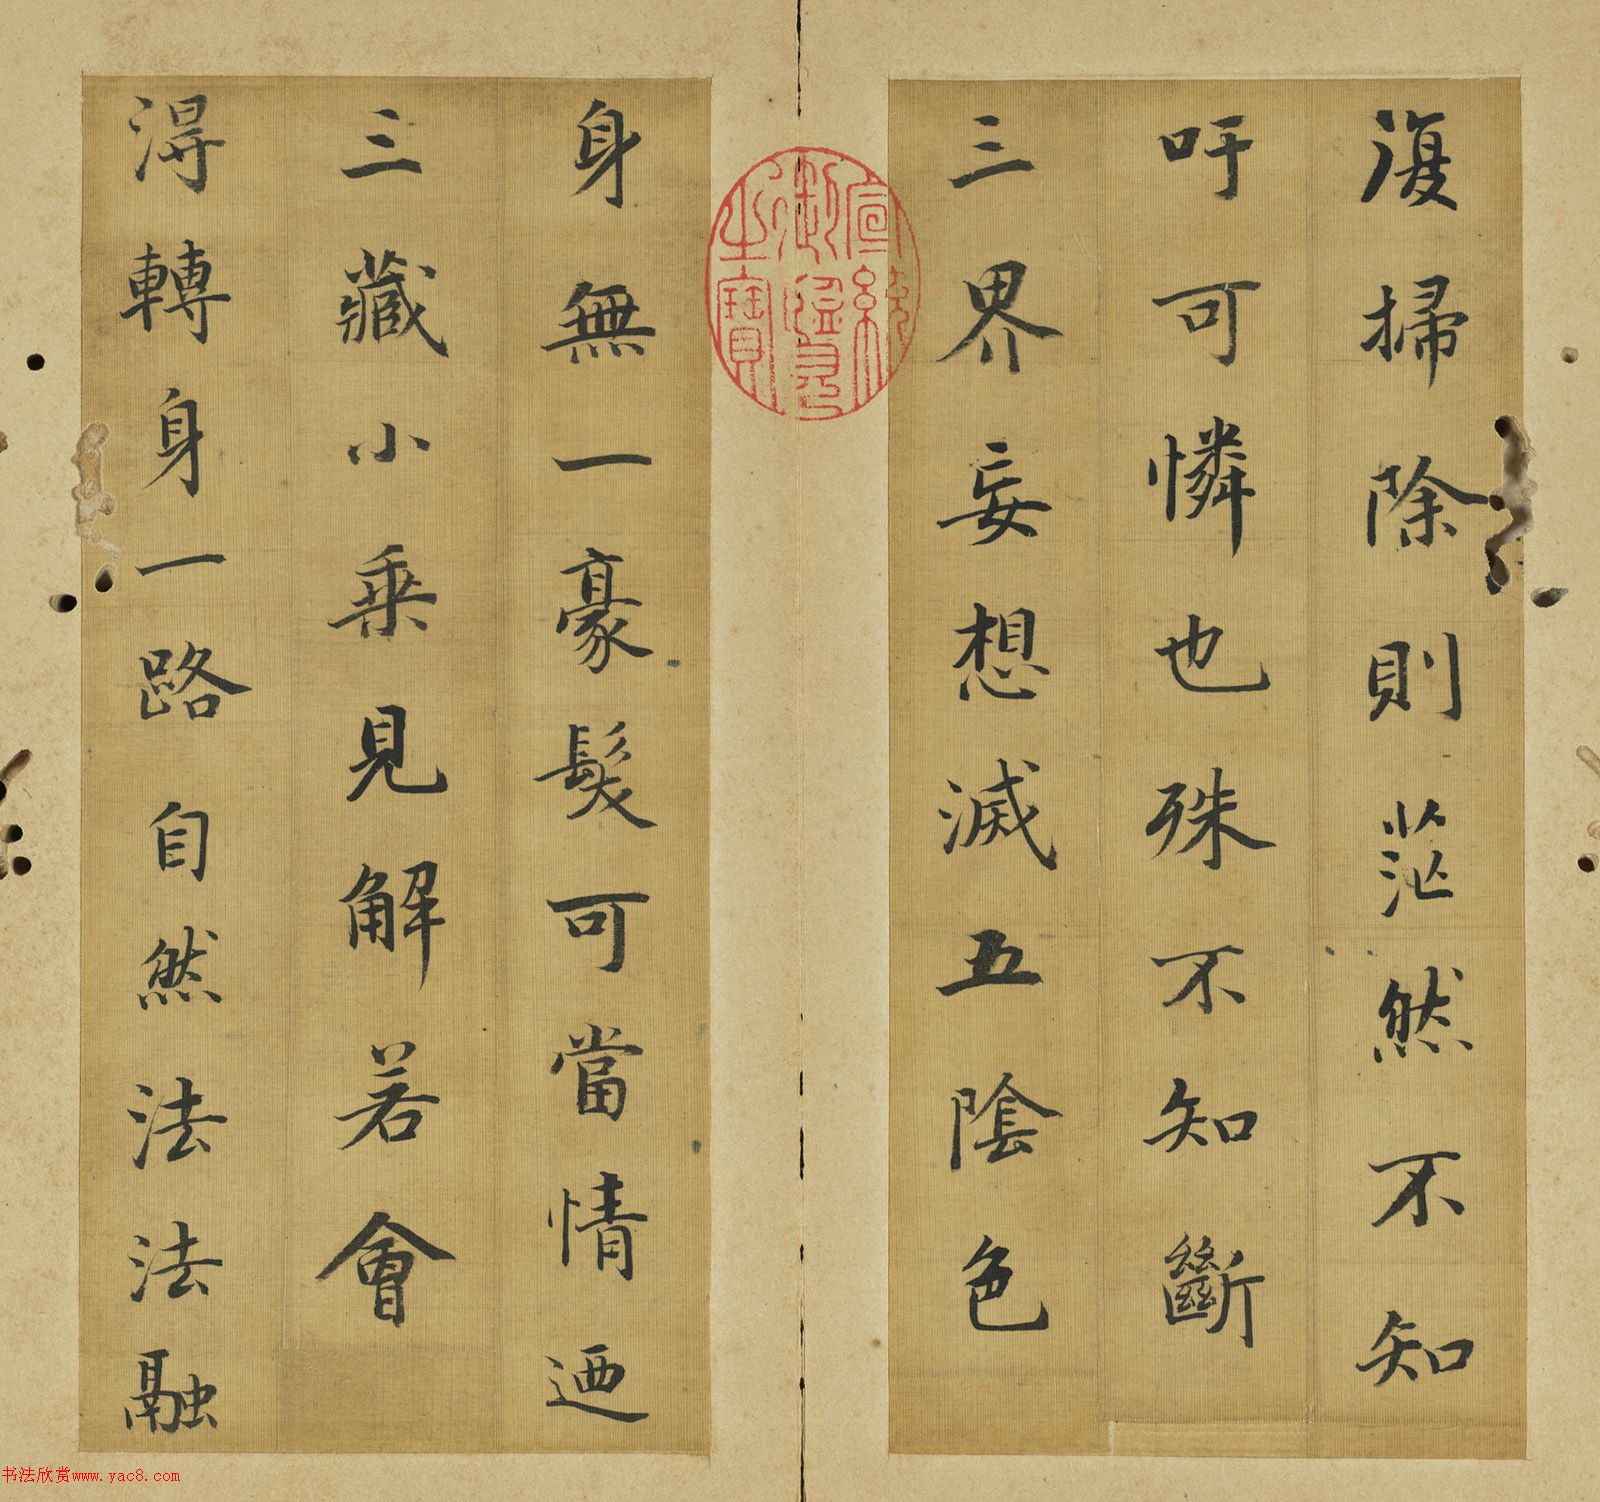 復掃除則茫然不知
吁可憐也殊不知斷
三界妄想滅五陰色
身無一豪髮可當情迺
三藏小乘見解若會
得轉身一路自然法法融
宣統御覽之寶
书法欣赏www.yac8.com